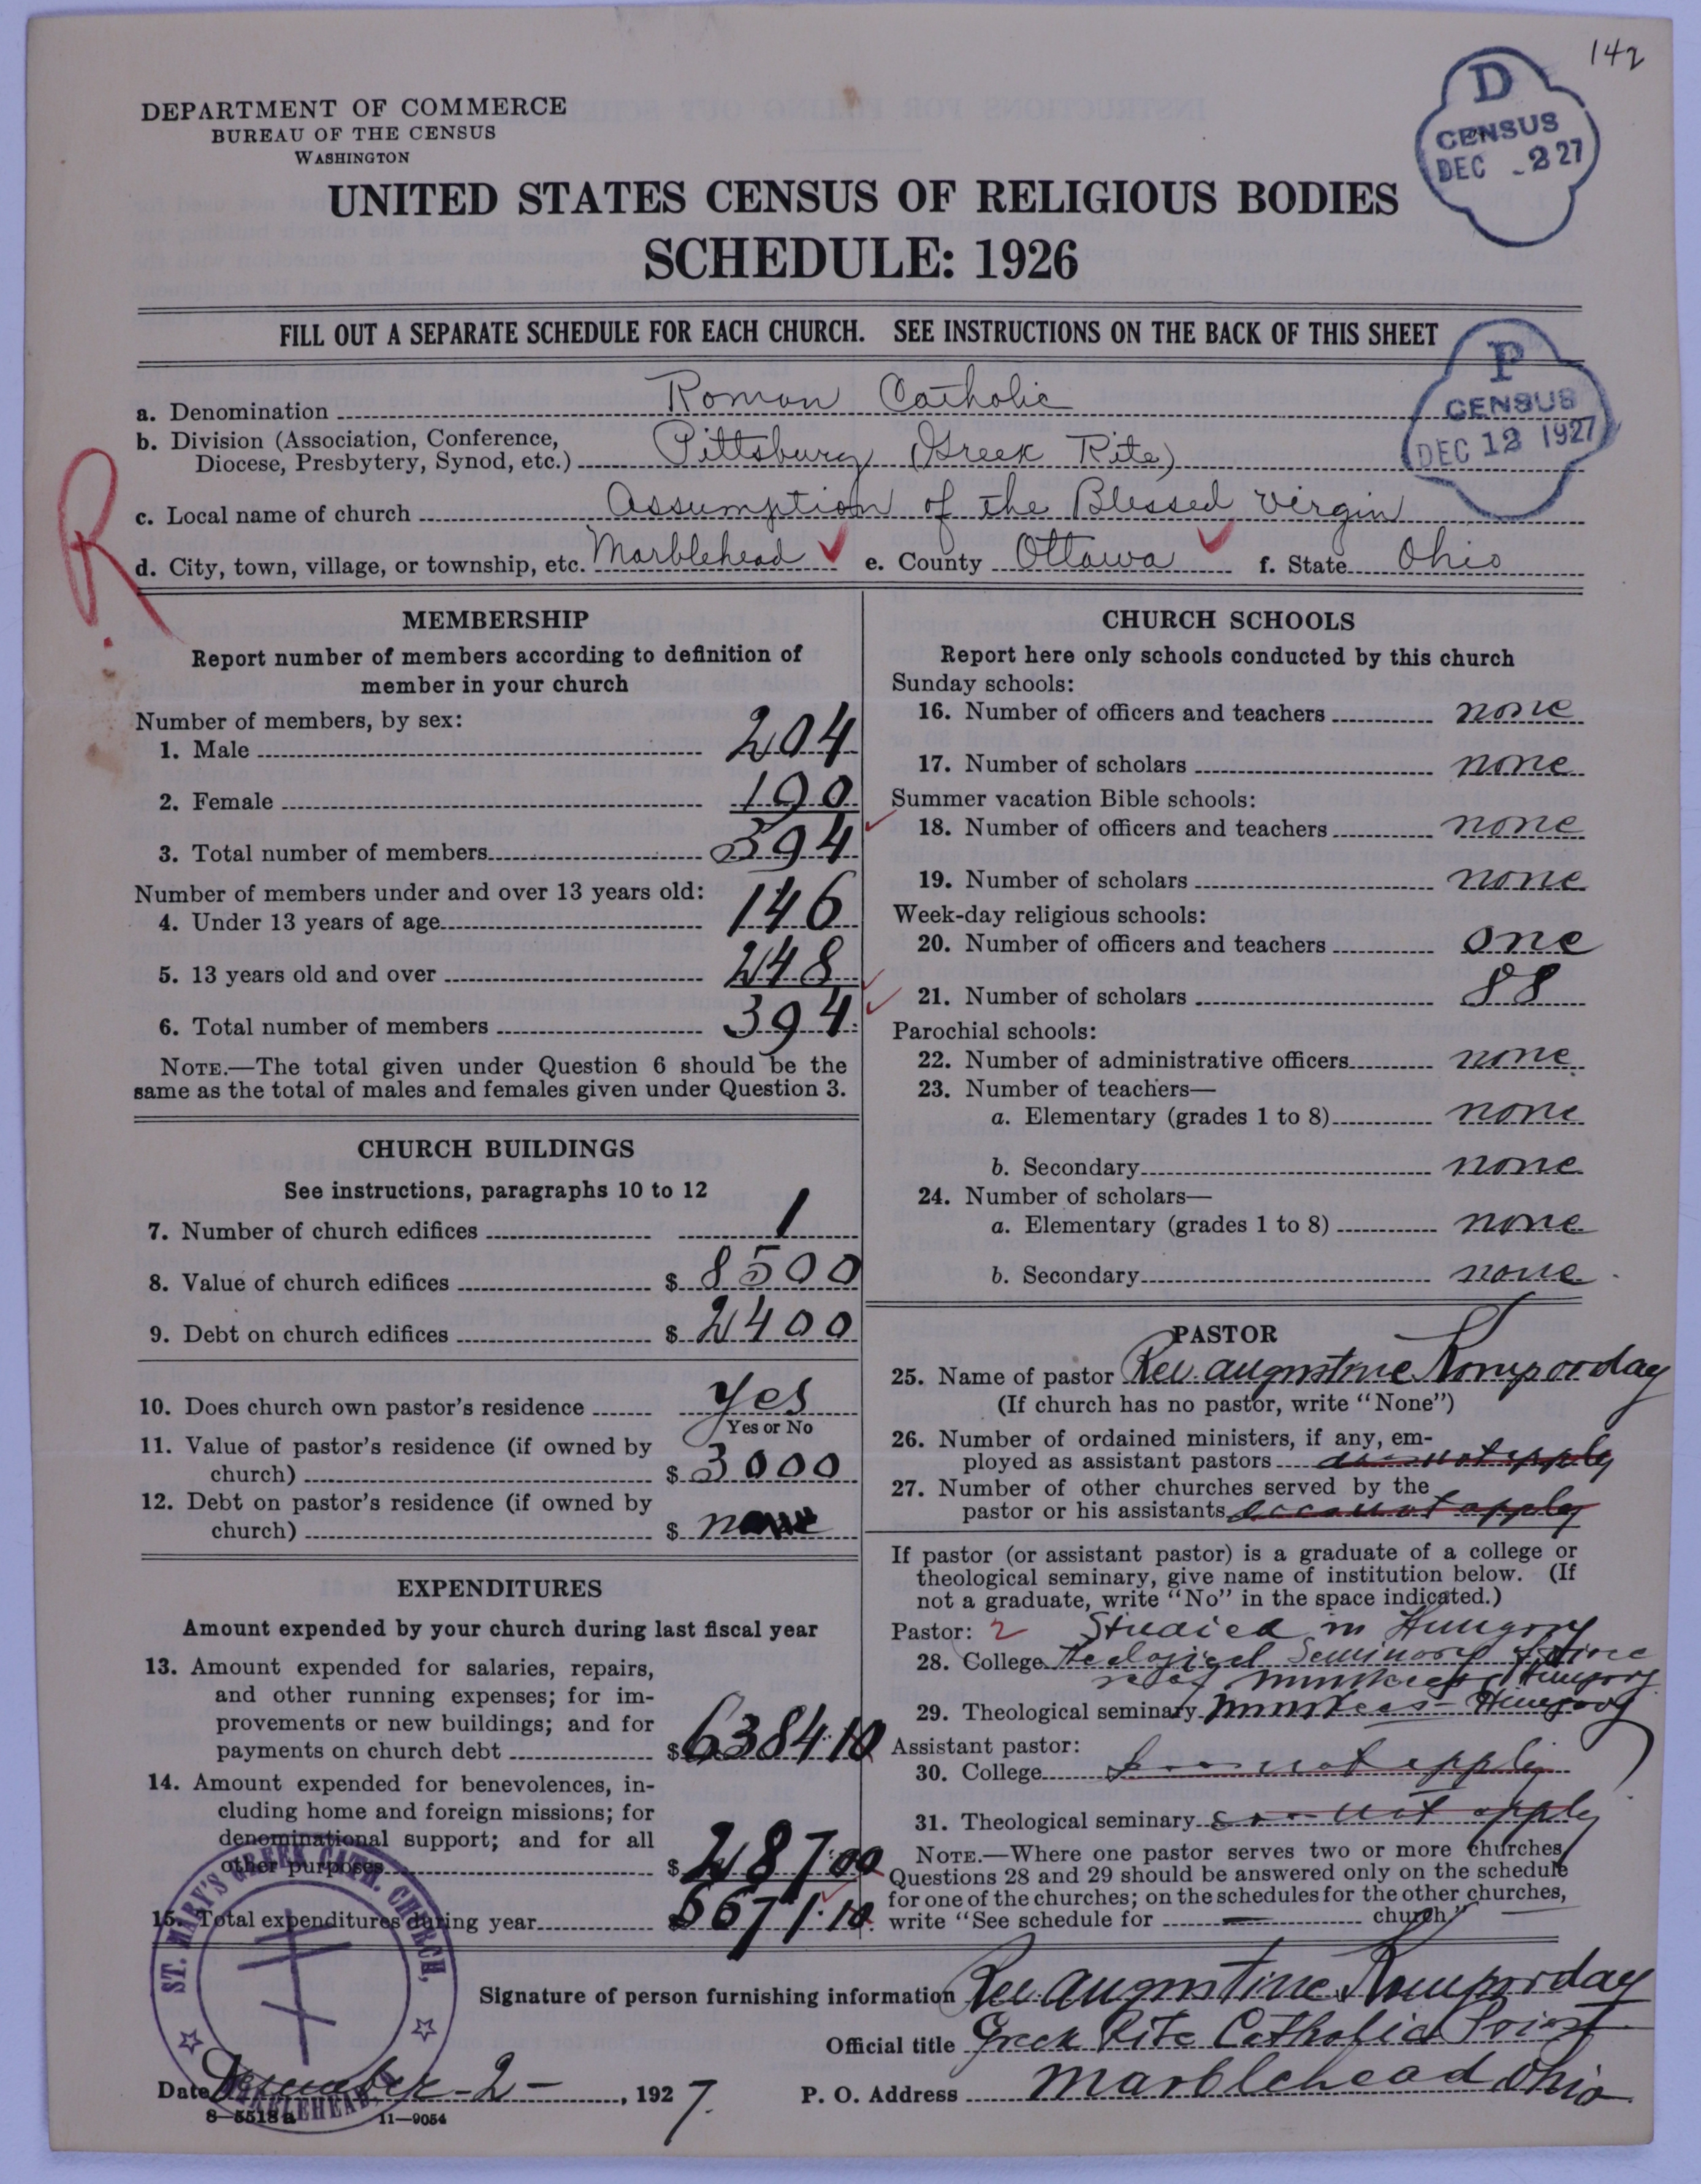 142
DEPARTMENT OF COMMERCE
BUREAU OF THE CENSUS
WASHINGTON
D
CENSUS
DEC - 2 27
UNITED STATES CENSUS OF RELIGIOUS BODIES
SCHEDULE: 1926
FILL OUT A SEPARATE SCHEDULE FOR EACH CHURCH. SEE INSTRUCTIONS ON THE BACK OF THIS SHEET
P
CENSUS
DEC 12 1927
R.
a. Denomination Roman Catholic
b. Division (Association, Conference,
Diocese, Presbytery, Synod, etc.) Pittsburg (Greek Rite)
c. Local name of church Assumption of the Blessed Virgin
d. City, town, village, or township, etc. Marblehead e. County Ottawa f. State Ohio
MEMBERSHIP
Report number of members according to definition of
member in your church
Number of members, by sex:
1. Male 204
2. Female 190
3. Total number of members 394
Number of members under and over 13 years old:
4. Under 13 years of age 146
5. 13 years old and over 248
6. Total number of members 394
NOTE.—The total given under Question 6 should be the
same as the total of males and females given under Question 3.
CHURCH BUILDINGS
See instructions, paragraphs 10 to 12
7. Number of church edifices 1
8. Value of church edifices $ 8500
9. Debt on church edifices $ 2400
10. Does church own pastor's residence Yes
Yes or No
11. Value of pastor's residence (if owned by
church) $ 3000
12. Debt on pastor's residence (if owned by
church) $ none
EXPENDITURES
Amount expended by your church during last fiscal year
13. Amount expended for salaries, repairs,
and other running expenses; for im-
provements or new buildings; and for
payments on church debt $ 6384.10
14. Amount expended for benevolences, in-
cluding home and foreign missions; for
denominational support; and for all
other purposes $ 287.00
15. Total expenditures during year $ 6671.10
CHURCH SCHOOLS
Report here only schools conducted by this church
Sunday schools:
16. Number of officers and teachers none
17. Number of scholars none
Summer vacation Bible schools:
18. Number of officers and teachers none
19. Number of scholars none
Week-day religious schools:
20. Number of officers and teachers one
21. Number of scholars 88
Parochial schools:
22. Number of administrative officers none
23. Number of teachers—
a. Elementary (grades 1 to 8) none
b. Secondary none
24. Number of scholars—
a. Elementary (grades 1 to 8) none
b. Secondary none
PASTOR
25. Name of pastor Rev. Augustine Komporday
(If church has no pastor, write "None")
26. Number of ordained ministers, if any, em-
ployed as assistant pastors does not apply
27. Number of other churches served by the
pastor or his assistants does not apply
If pastor (or assistant pastor) is a graduate of a college or
theological seminary, give name of institution below. (If
not a graduate, write "No" in the space indicated.)
Pastor: 2 Studied in Hungary
28. College Teological Seminary
29. Theological seminary Munkacs - Hungary
Assistant pastor:
30. College does not apply
31. Theological seminary does not apply
NOTE.—Where one pastor serves two or more churches,
Questions 28 and 29 should be answered only on the schedule
for one of the churches; on the schedules for the other churches,
write "See schedule for church"
ST. MARY'S GREEK CATH. CHURCH,
MARBLEHEAD,
Signature of person furnishing information Rev. Augustine Komporday
Official title Greek Rite Catholic Priest
Date December - 2 - , 1927. P. O. Address Marblehead Ohio
8—5518a 11—9054